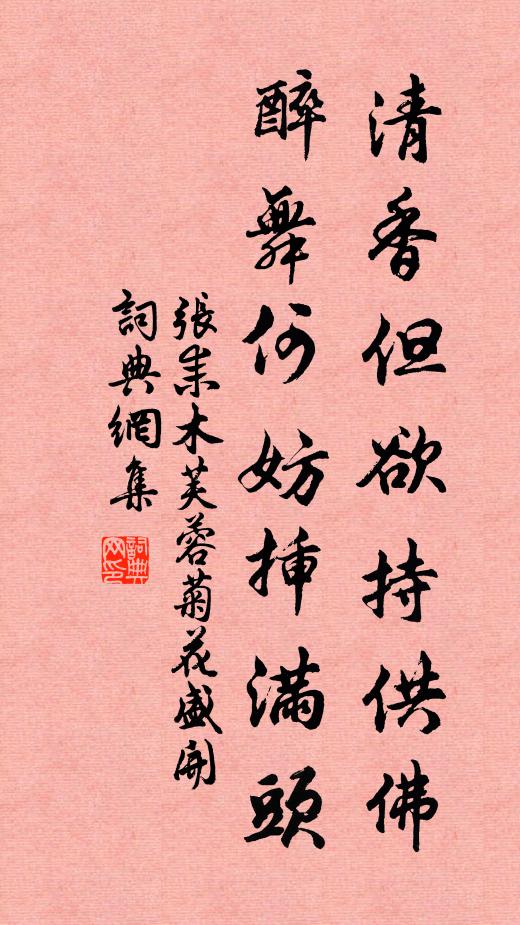 清香但欲持供佛
醉舞何妨插滿頭
張耒木芙蓉菊花盛開
詞典網集
詞典网印